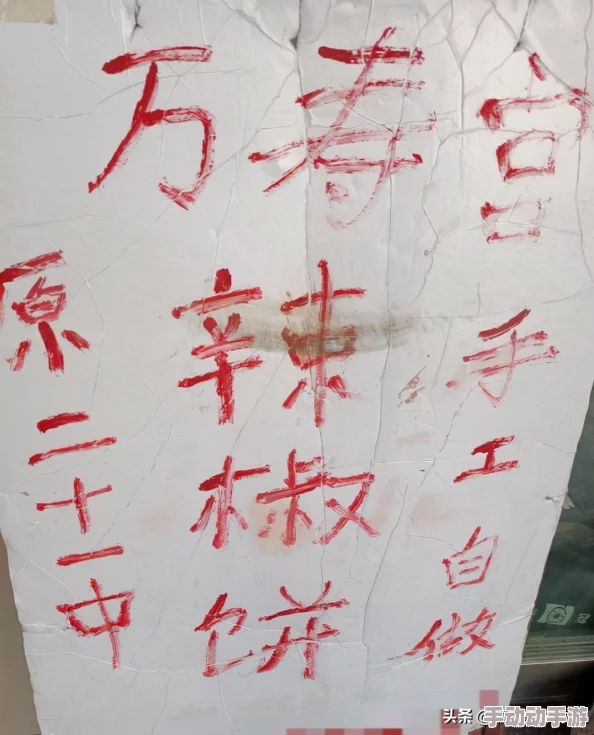 万寿宫
辣椒饼
手工自做
原二十一中
头条 @手动动手游